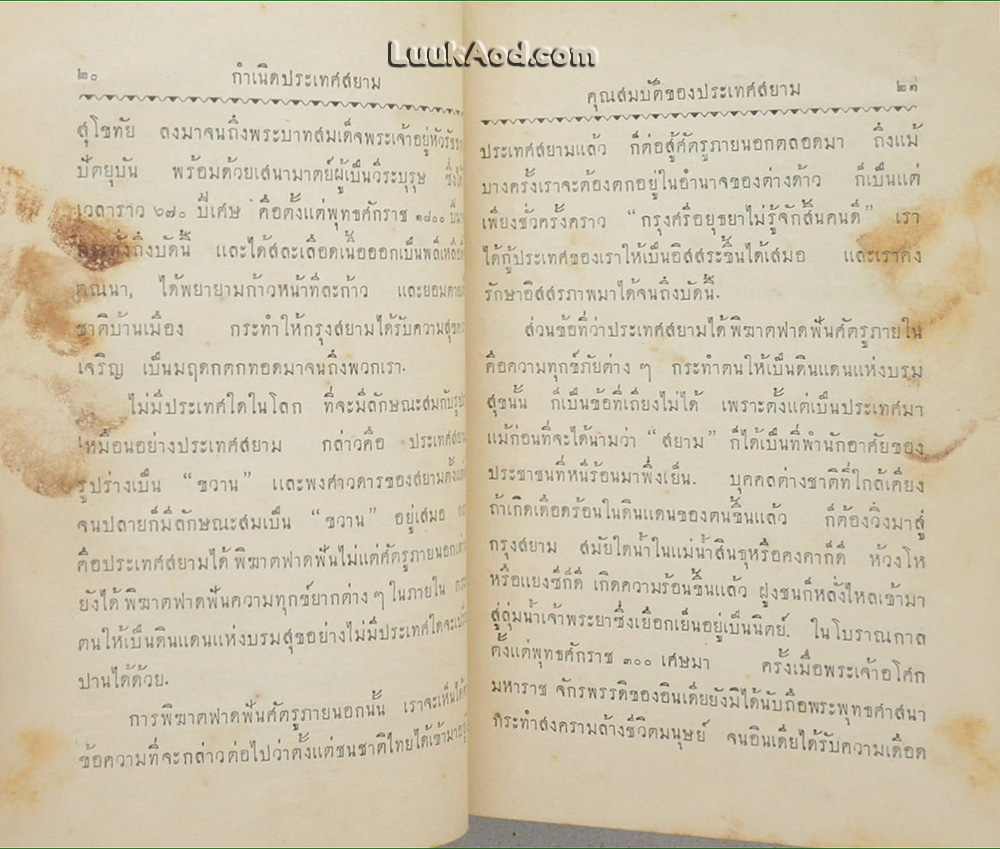 LuukAod.com
๒๐ กำเนิดประเทศสยาม
สุโขทัย ลงมาจนถึงพระบาทสมเด็จพระเจ้าอยู่หัวรัชกา
ปัตยุบัน พร้อมด้วยเสนามาตย์ผู้เป็นวีระบุรุษ ซึ่งได้
เวลาราว ๖๘๐ ปีเศษ คือตั้งแต่พุทธศักราช ๑๘๐๐ ปีมา
จนถึงบัดนี้ และได้สละเลือดเนื้อออกเป็นพลีเหลือที่
คณนา, ได้พยายามก้าวหน้าทีละก้าว และยอมตาย
ชาติบ้านเมือง กระทำให้กรุงสยามได้รับความสุขคว
เจริญ เป็นมฤดกตกทอดมาจนถึงพวกเรา.
ไม่มีประเทศใดในโลก ที่จะมีลักษณะสมกับรูปร่
เหมือนอย่างประเทศสยาม กล่าวคือ ประเทศสยาม
รูปร่างเป็น “ขวาน” และพงศาวดารของสยามตั้งแต่
จนปลายก็มีลักษณะสมเป็น “ขวาน” อยู่เสมอ
คือประเทศสยามได้พิฆาตฟาดฟันไม่แต่ศัตรูภายนอกเท่า
ยังได้พิฆาตฟาดฟันความทุกข์ยากต่าง ๆ ในภายใน กระ
ตนให้เป็นดินแดนแห่งบรมสุขอย่างไม่มีประเทศใดจะเปรีย
ปานได้ด้วย.
การพิฆาตฟาดฟันศัตรูภายนอกนั้น เราจะเห็นได้จ
ข้อความที่จะกล่าวต่อไปว่าตั้งแต่ชนชาติไทยได้เข้ามาอยู่
คุณสมบัติของประเทศสยาม ๒๑
ประเทศสยามแล้ว ก็ต่อสู้ศัตรูภายนอกตลอดมา ถึงแม้
บางครั้งเราจะต้องตกอยู่ในอำนาจของต่างด้าว ก็เป็นแต่
เพียงชั่วครั้งคราว “กรุงศรีอยุธยาไม่รู้จักสิ้นคนดี” เรา
ได้กู้ประเทศของเราให้เป็นอิสสระขึ้นได้เสมอ และเราคง
รักษาอิสสรภาพมาได้จนถึงบัดนี้.
ส่วนข้อที่ว่าประเทศสยามได้พิฆาตฟาดฟันศัตรูภายใน
คือความทุกข์ภัยต่าง ๆ กระทำตนให้เป็นดินแดนแห่งบรม
สุขนั้น ก็เป็นข้อที่เถียงไม่ได้ เพราะตั้งแต่เป็นประเทศมา
แม้ก่อนที่จะได้นามว่า “สยาม” ก็ได้เป็นที่พำนักอาศัยของ
ประชาชนที่หนีร้อนมาพึ่งเย็น. บุคคลต่างชาติที่ใกล้เคียง
ถ้าเกิดเดือดร้อนในดินแดนของตนขึ้นแล้ว ก็ต้องวิ่งมาสู่
กรุงสยาม สมัยใดน้ำในแม่น้ำสินธุหรือคงคาก็ดี ห้วงโห
หรือแยงซีก็ดี เกิดความร้อนขึ้นแล้ว ฝูงชนก็หลั่งไหลเข้ามา
สู่ลุ่มน้ำเจ้าพระยาซึ่งเยือกเย็นอยู่เป็นนิตย์. ในโบราณกาล
ตั้งแต่พุทธศักราช ๓๐๐ เศษมา ครั้งเมื่อพระเจ้าอโศก
มหาราช จักรพรรดิของอินเดียยังมิได้นับถือพระพุทธศาสนา
กระทำสงครามล้างชีวิตมนุษย์ จนอินเดียได้รับความเดือด